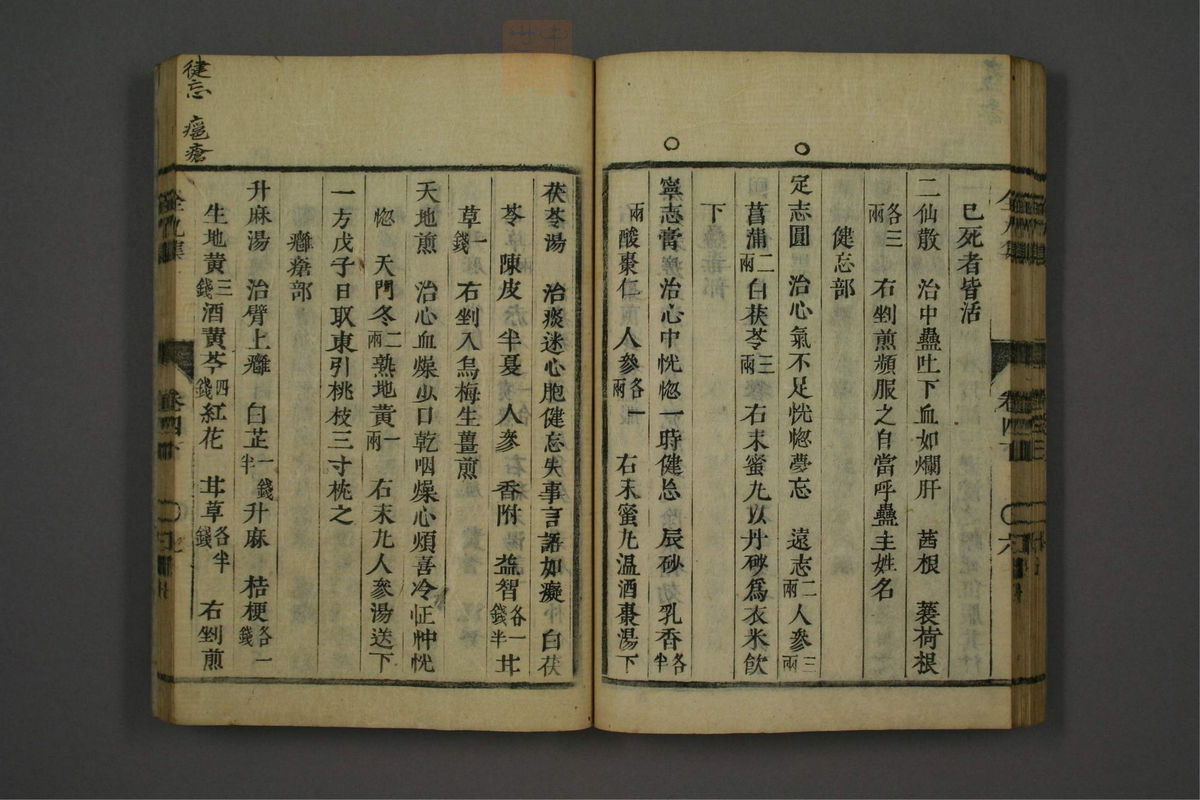 巳死者皆活
二仙散　治中蠱吐下血如爛肝　茜根　蘘荷根
各三兩　右剉煎頻服之自當呼蠱主姓名
健忘部
定志圓　治心氣不足恍惚夢忘　遠志二兩人參三兩
菖蒲二兩白茯苓三兩右末蜜九以丹砂爲衣米飮
下
寧志膏　治心中恍惚一時健忘　辰砂　乳香各半
兩酸棗仁　人參各一兩　右末蜜九温酒棗湯下
茯苓湯　治痰迷心胞健忘失事言語如癡　白茯
苓　陳皮　半夏　人參　香附　益智各一錢半　甘
草一錢　右剉入烏梅生薑煎
天地煎　治心血燥少口乾咽燥心煩喜冷怔忡恍
惚　天門冬二兩熟地黃一兩　右末九人參湯送下
一方戊子日取東引桃枝三寸枕之
癰瘡部
升麻湯　治臂上癰　白芷一錢半升麻　桔梗各一錢
生地黃三錢酒黃芩四錢紅花　甘草各半錢　右剉煎
卷四下
六
卷四下
健忘　瘡